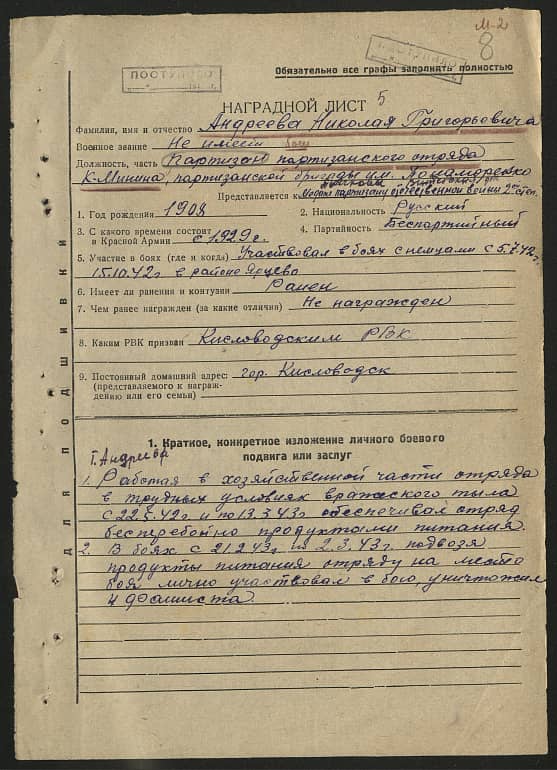 М-2
8
ПОСТУПИЛО
ПОСТУПИЛО
Обязательно все графы заполнять полностью
НАГРАДНОЙ ЛИСТ 5
Фамилия, имя и отчество Андреева Николая Григорьевича
Военное звание Не имеет
Должность, часть Партизан партизанского отряда
К-Минина, партизанской бригады им. Понаморенко
Представляется к Медали партизану отечественной войны 2ой степ.
1. Год рождения 1908 2. Национальность Русский
3. С какого времени состоит в Красной Армии с 1929г. 4. Партийность Беспартийный
5. Участие в боях (где и когда) Участвовал в боях с немцами с 5.7.42г.
15.10.42г в районе Ярцево
6. Имеет ли ранения и контузии Ранен
7. Чем ранее награжден (за какие отличия) Не награжден
8. Каким РВК призван Кисловодским РВК
9. Постоянный домашний адрес: гор. Кисловодск
(представляемого к награж-
дению или его семьи)
ДЛЯ ПОДШИВКИ
1. Краткое, конкретное изложение личного боевого
подвига или заслуг
Т. Андреев
1. Работая в хозяйственной части отряда
в трудных условиях вражеского тыла
с 22.5.42г. и по 13.3.43г обеспечивал отряд
бесперебойно продуктами питания.
2. В боях с 21.2.43г по 2.3.43г. подвозя
продукты питания отряду на место
боя лично участвовал в бою, уничтожил
4 фашиста.